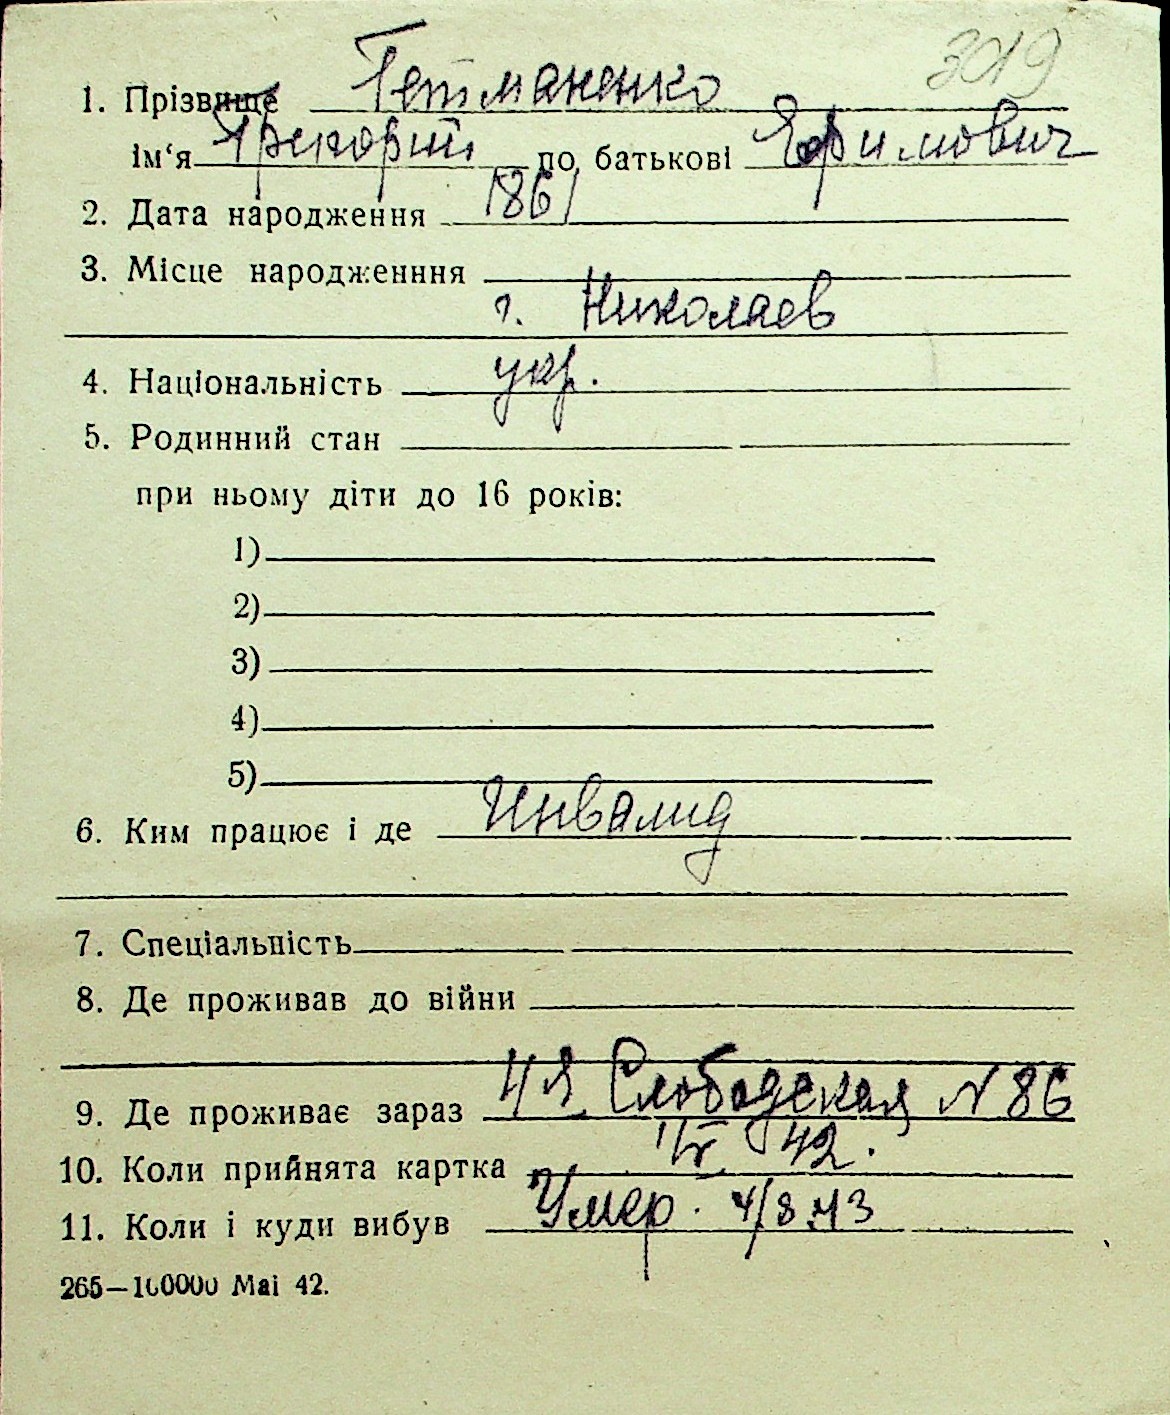 3019
1. Прізвище Гетманенко
ім‘я Григорий по батькові Ефимович
2. Дата народження 1861
3. Місце народженння
г. Николаев
4. Національність укр.
5. Родинний стан
при ньому діти до 16 років:
1)
2)
3)
4)
5)
6. Ким працює і де Инвалид
7. Спеціальність
8. Де проживав до війни
9. Де проживає зараз 4я Слободская N 86
10. Коли прийнята картка 42.
11. Коли і куди вибув Умер. 4/8.43
265—100000 Mai 42.